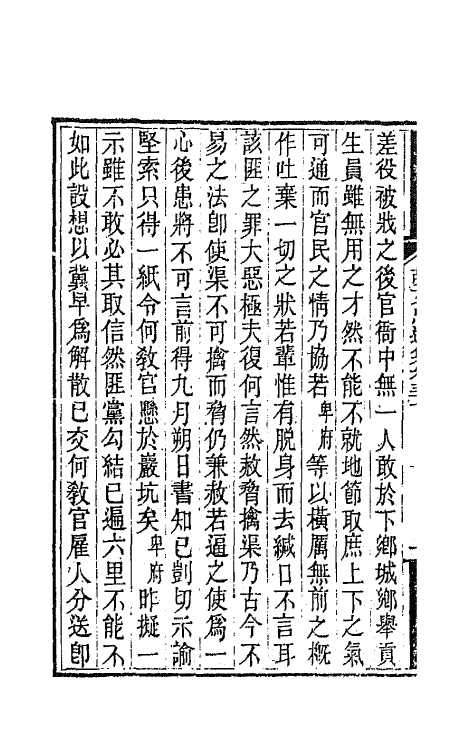 差役被戕之後官衙中無一人敢於下鄉城鄉舉貢
生員雖無用之才然不能不就地節取庶上下之氣
可通而官民之情乃協若卑府等以橫厲無前之概
作吐棄一切之狀若輩惟有脫身而去緘口不言耳
該匪之罪大惡極夫復何言然赦脅擒渠乃古今不
易之法卽使渠不可擒而脅仍兼赦若逼之使爲一
心後患將不可言前得九月朔日書知已剴切示諭
堅索只得一紙令何敎官懸於嚴坑矣卑府昨擬一
示雖不敢必其取信然匪黨勾結已遍六里不能不
如此設想以冀早爲解散已交何敎官雇人分送卽